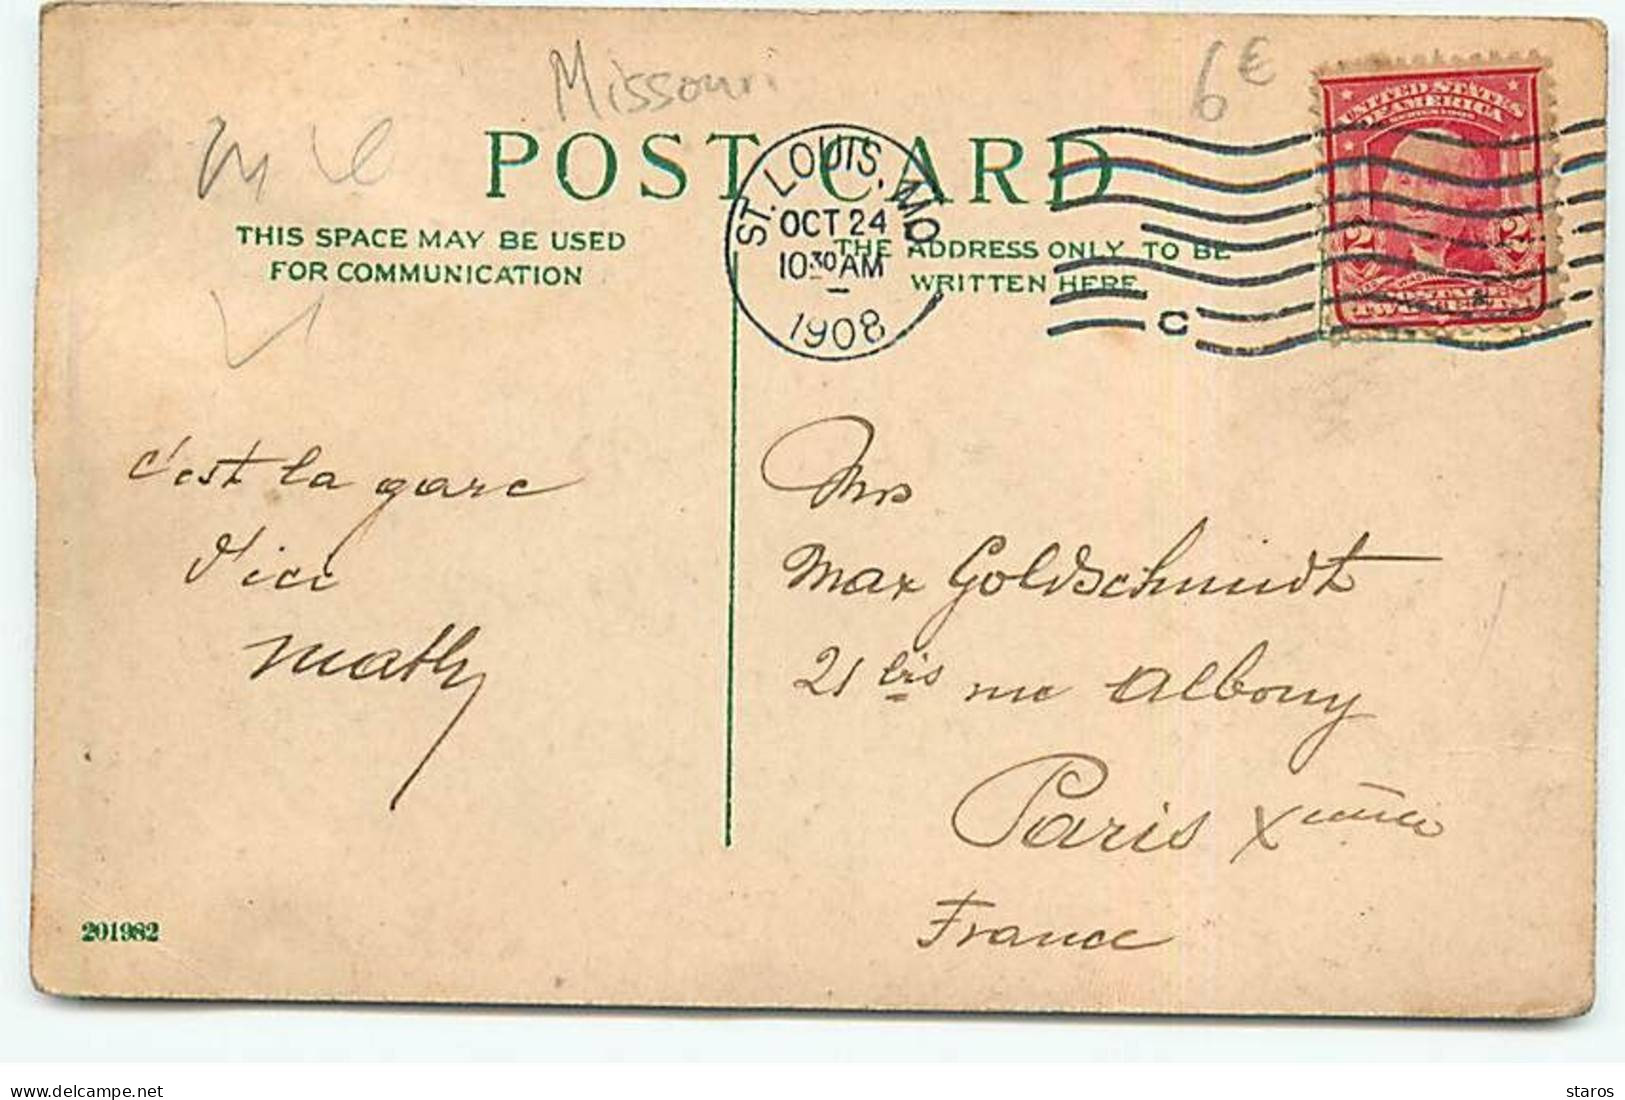 Missouri
6€
POST CARD
THIS SPACE MAY BE USED
FOR COMMUNICATION
THE ADDRESS ONLY TO BE
WRITTEN HERE
ST. LOUIS, MO.
OCT 24
10 30 AM
1908
C
UNITED STATES
OF AMERICA
2 2
c'est la gare
d'ici
Mathy
Mrs
Max Goldschmidt
21 bis rue Albouy
Paris Xème
France
201982
delcampe.net
staros